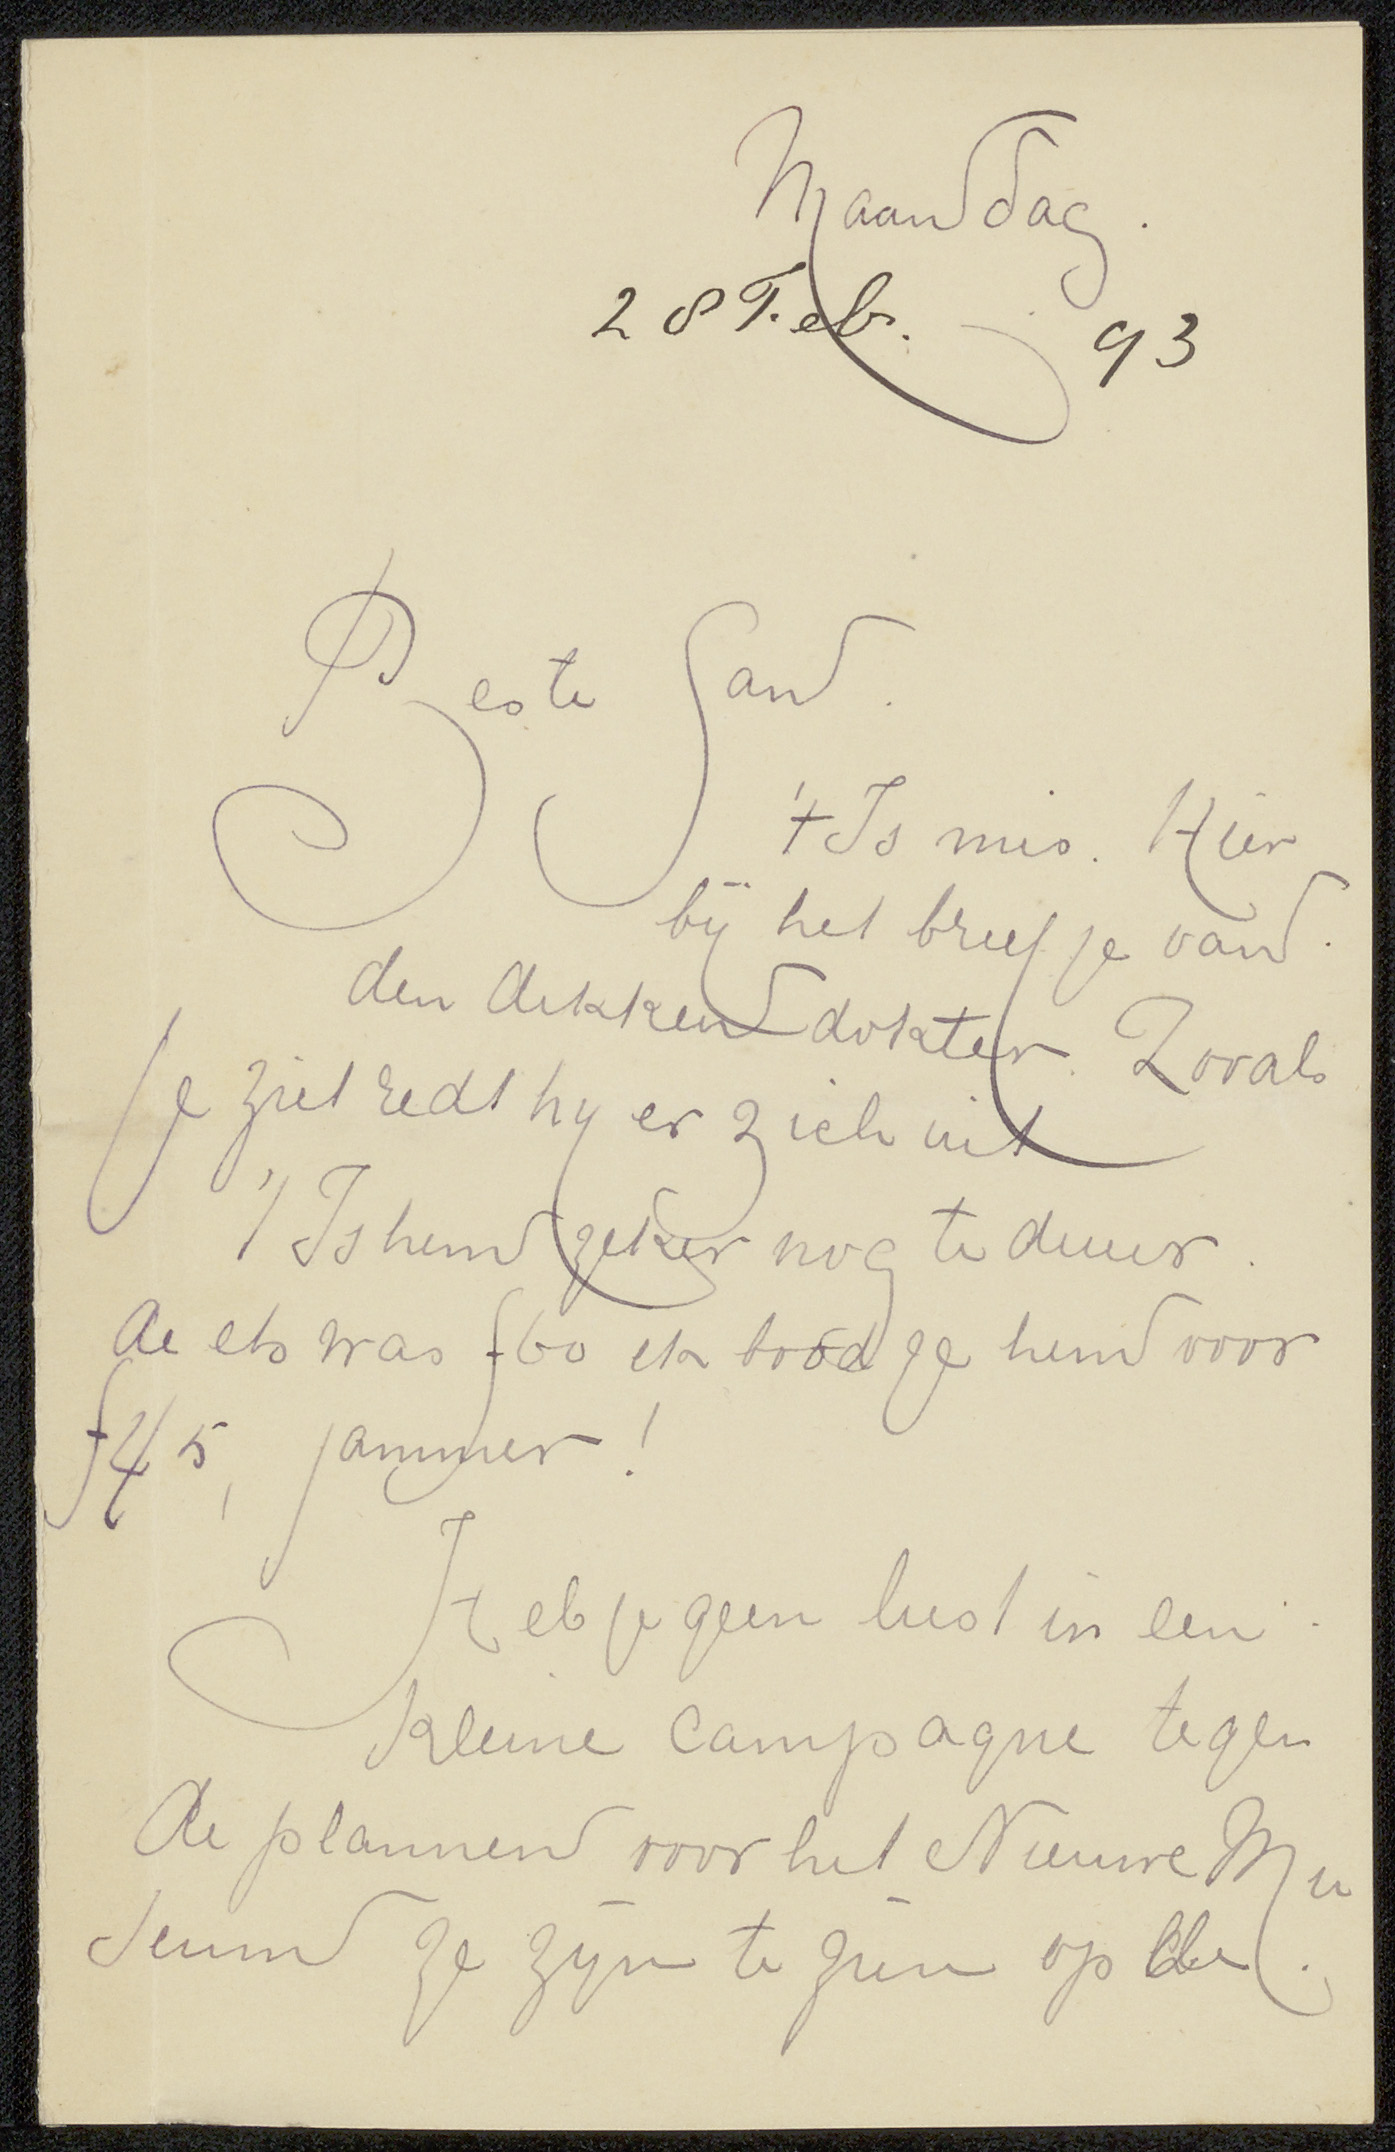 Maandag.
28 Feb. 93
Beste Sand.
't Is mis. Hier
bij het briefje van
den dikken dokter. Zooals
je ziet redt hy er zich uit
't Is hem zeker nog te duur.
de ets was f60 ik bood ze hem voor
f45, jammer!
Heb je geen lust in een
kleine campagne tegen
de plannen voor het Nieuwe Mu
seum ze zyn te zien op de